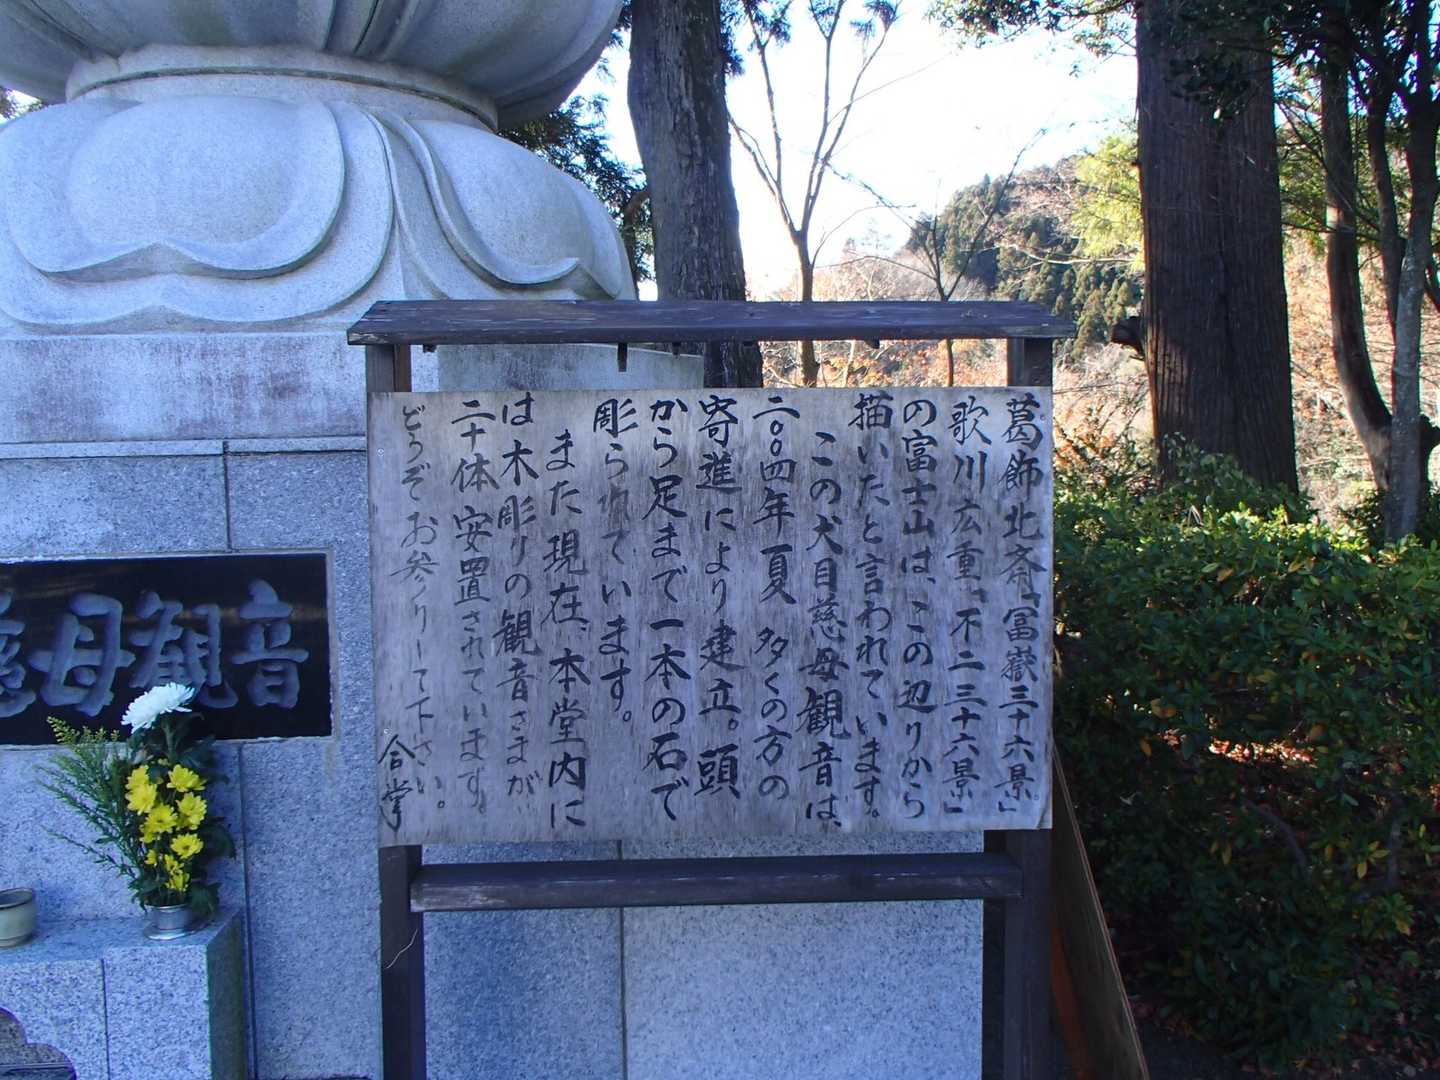 葛飾北斎「冨嶽三十六景」
歌川広重「不二三十六景」
の富士山は、この辺りから
描いたと言われています。
この犬目慈母観音は、
二〇〇四年夏 多くの方の
寄進により建立。頭
から足まで一本の石で
彫られています。
また現在、本堂内に
は木彫りの観音さまが
二十体安置されています。
どうぞお参りして下さい。
合掌
慈母観音